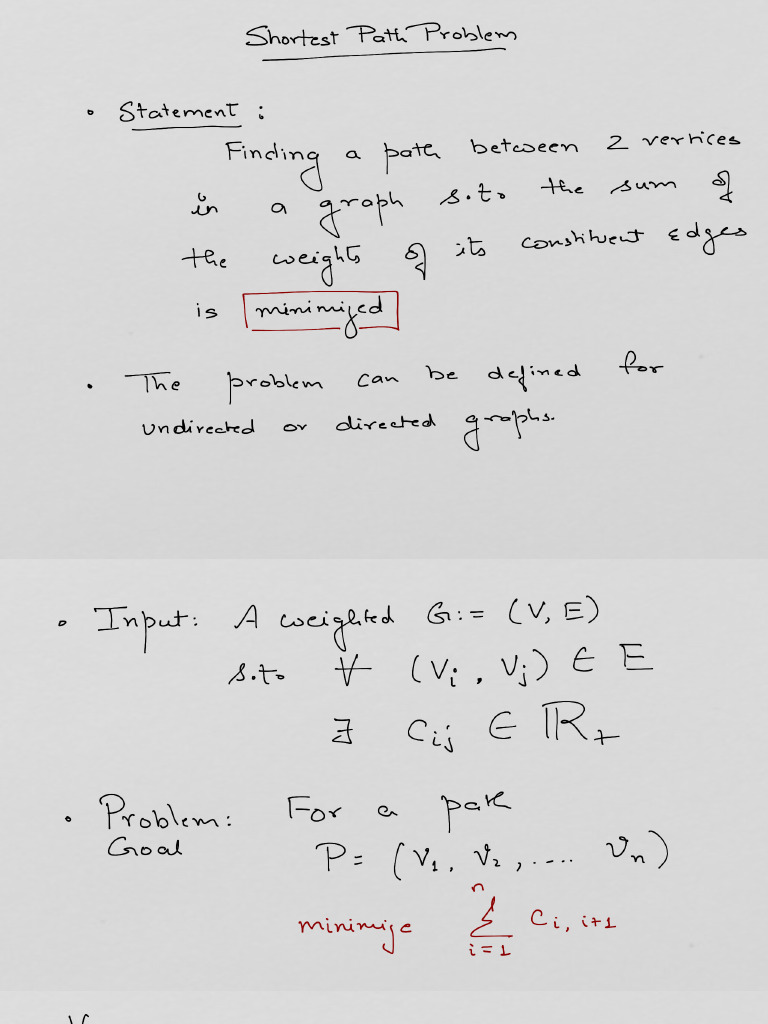 Shortest Path Problem
• Statement :
Finding a path between 2 vertices
in a graph s.to the sum of
the weights of its constituent edges
is minimized
• The problem can be defined for
undirected or directed graphs.
• Input: A weighted G := (V, E)
s.to ∀ (Vi, Vj) ∈ E
∃ Cij ∈ ℝ+
• Problem: For a path
Goal P = (V1, V2, .... Vn)
n
minimize Σ Ci, i+1
i=1